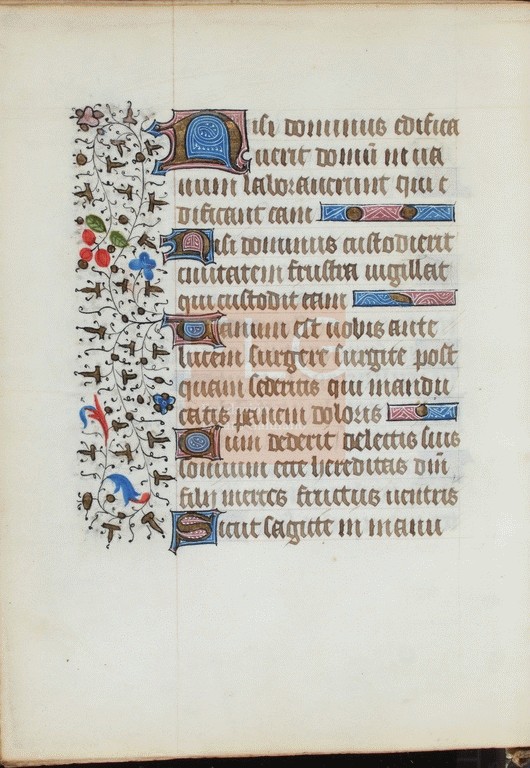 Nisi dominus edifica
uerit domū in ua
num laborauerunt qui e
dificant eam
Nisi dominus custodierit
ciuitatem frustra uigillat
qui custodit eam
Uanum est uobis ante
lucem surgere surgite post
quam sederitis qui mandu
catis panem doloris
Cum dederit delectis suis
sompnum ecce hereditas dñi
filij merces fructus uentris
Sicut sagitte in manu